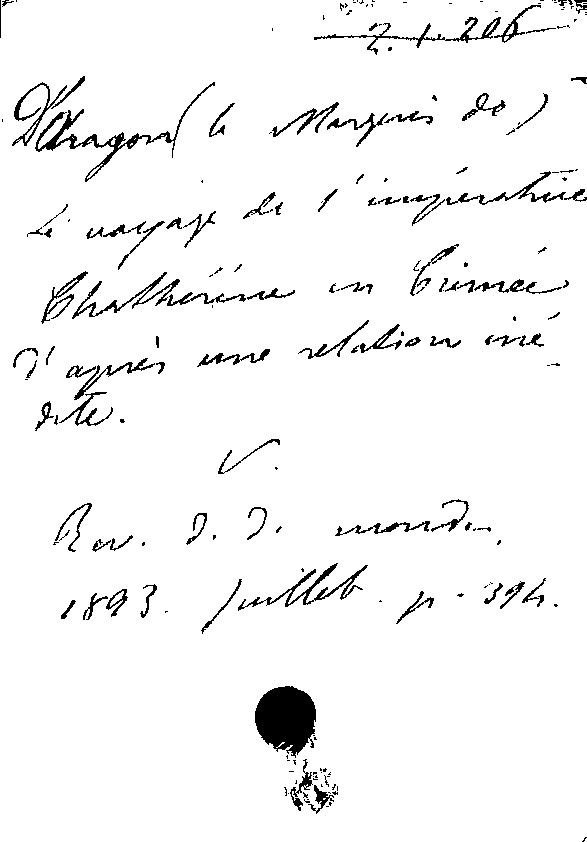 2.1.206
D'Aragon (le Marquis de)
Le voyage de l'impératrice
Chathérine en Crimée
d'après une relation iné-
dite.
V.
Rev. d. d. mondes,
1893. Juillet. p. 394.